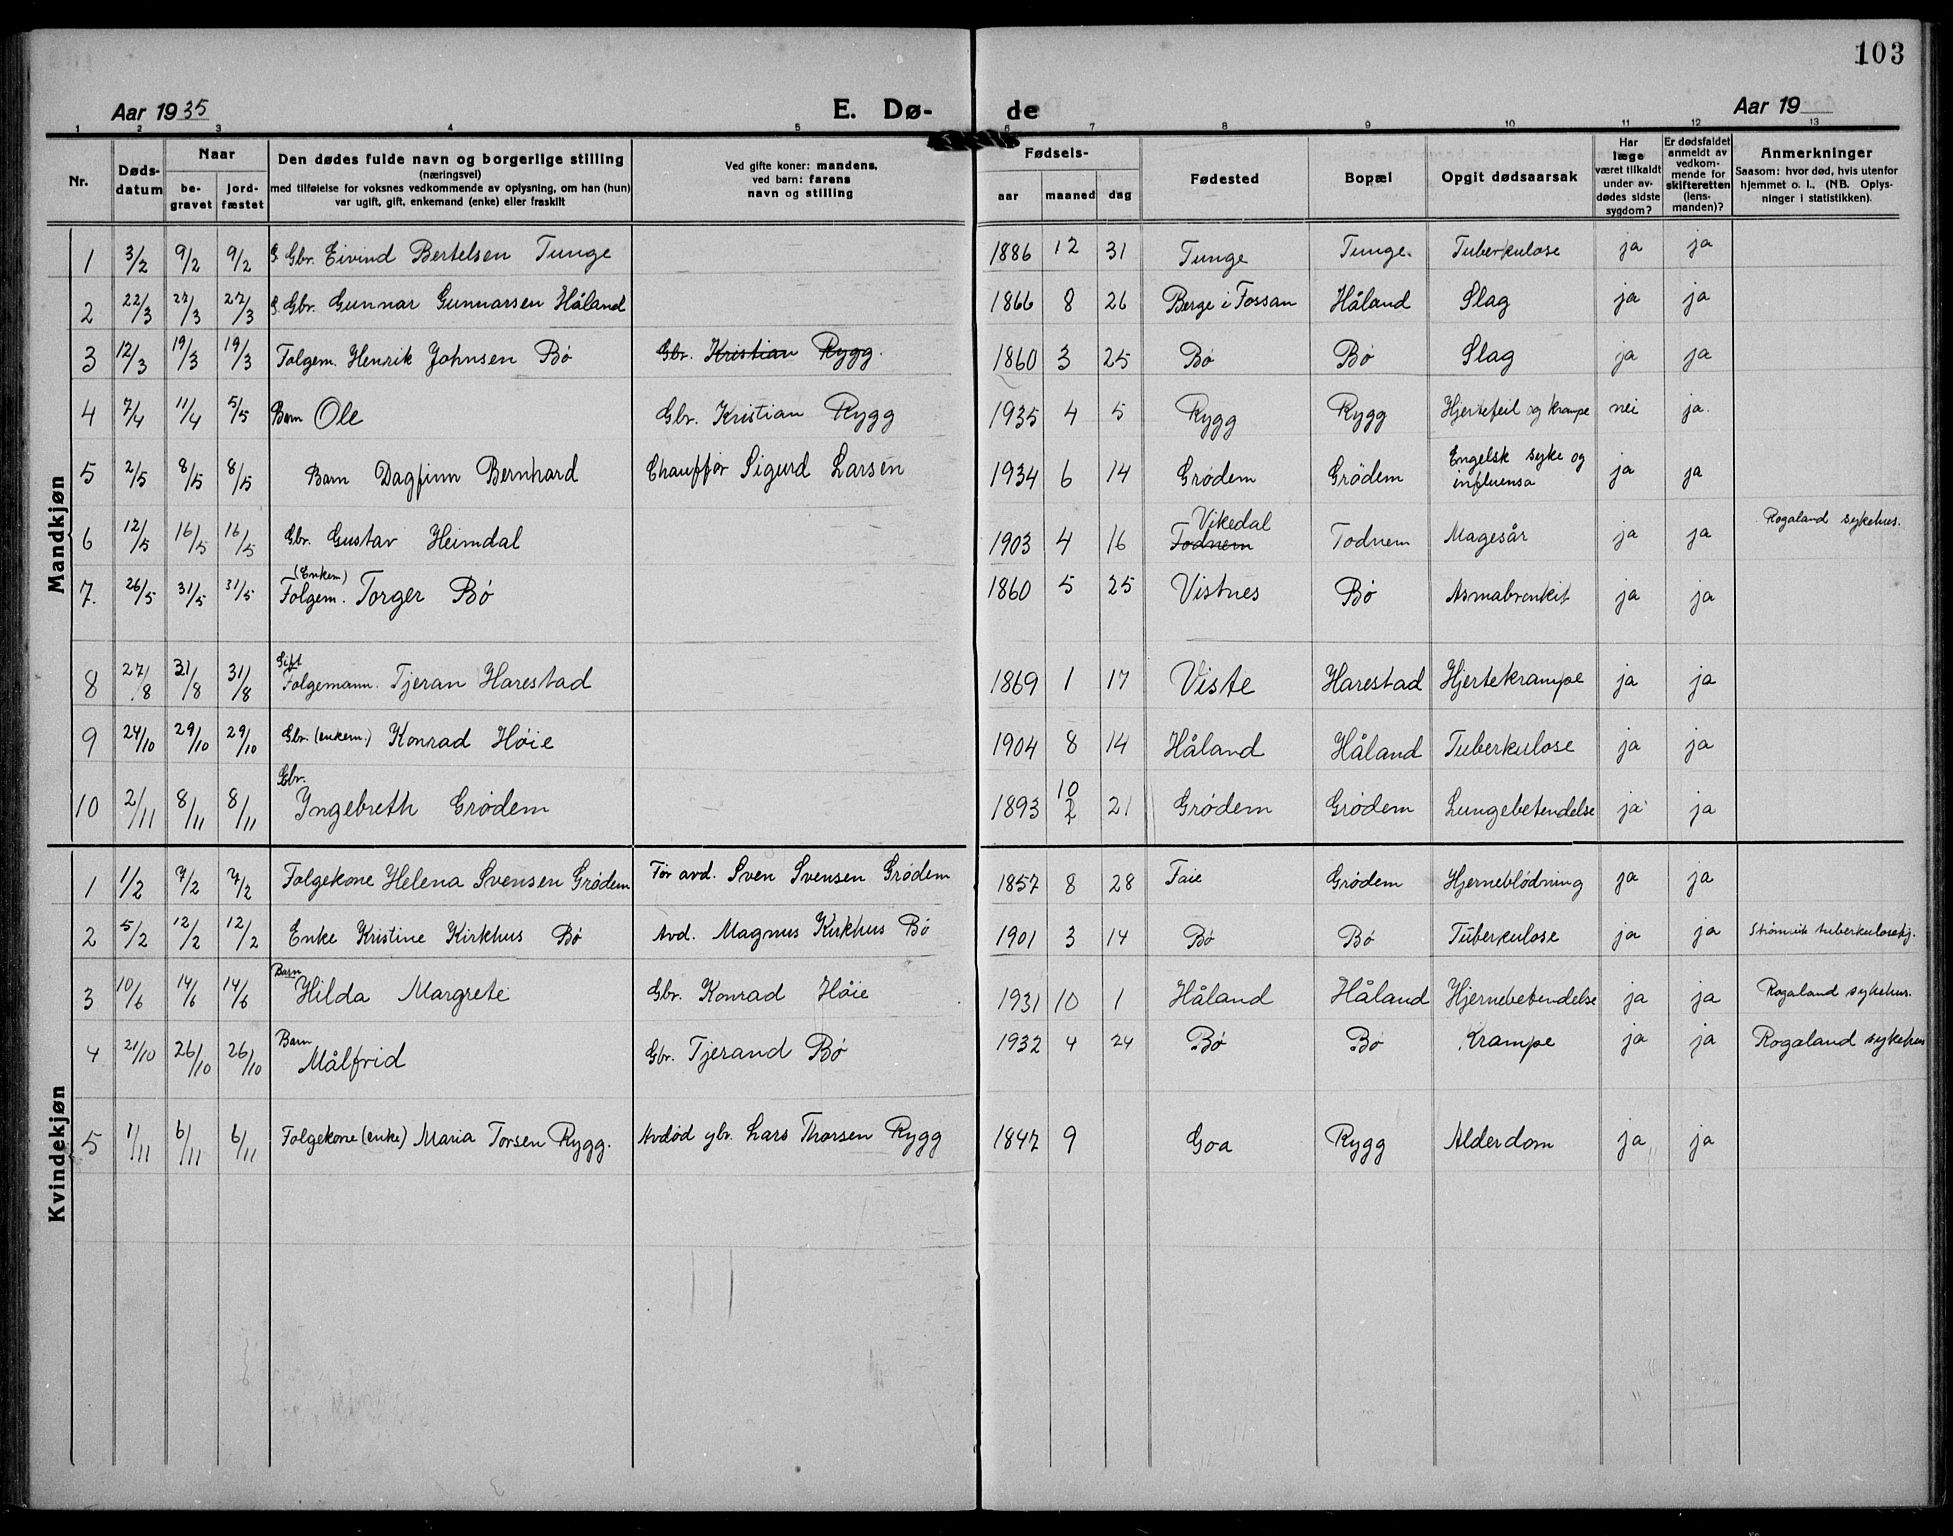 103
Aar 1935 E. Dø- de Aar 19
1 2 3 4 5 6 7 8 9 10 11 12 13
Nr. Døds-datum Naar be-gravet jord-fæstet Den dødes fulde navn og borgerlige stilling (næringsvei) med tilføielse for voksnes vedkommende av oplysning, om han (hun) var ugift, gift, enkemand (enke) eller fraskilt Ved gifte koner: mandens, ved barn: farens navn og stilling Fødsels- aar maaned dag Fødested Bopæl Opgit dødsaarsak Har læge været tilkaldt under av-dødes sidste sygdom? Er dødsfaldet anmeldt av vedkom-mende for skifteretten (lens-manden)? Anmerkninger Saasom: hvor død, hvis utenfor hjemmet o. l., (NB. Oplys-ninger i statistikken).
Mandkjøn
1 3/2 9/2 9/2 G. Gbr. Eivind Bertelsen Tunge 1886 12 31 Tunge Tunge. Tuberkulose ja ja
2 22/3 27/3 27/3 G. Gbr. Gunnar Gunnarsen Håland 1866 8 26 Berge i Fossan Håland Slag ja ja
3 12/3 19/3 19/3 Folgem. Henrik Johnsen Bø Gbr. Kristian Rygg. 1860 3 25 Bø Bø Slag ja ja
4 7/4 11/4 5/5 Barn Ole Gbr. Kristian Rygg 1935 4 5 Rygg Rygg Hjertefeil og krampe nei ja.
5 2/5 8/5 8/5 Barn Dagfinn Bernhard Chauffør Sigurd Larsen 1934 6 14 Grødem Grødem Engelsk syke og influensa ja ja
6 12/5 16/5 16/5 Gbr. Gustav Heimdal 1903 4 16 Vikedal Todnem Todnem Magesår ja ja Rogaland sykehus.
7. 26/5 31/5 31/5 (Enkem) Folgem. Torger Bø 1860 5 25 Vistnes Bø Asmabronkit ja ja
8 27/8 31/8 31/8 Gift Folgemann. Tjeran Harestad 1869 1 17 Viste Harestad Hjertekrampe ja ja
9 24/10 29/10 29/10 Gbr. (enkem.) Konrad Høie 1904 8 14 Håland Håland Tuberkulose ja ja
10 2/11 8/11 8/11 Gbr. Ingebreth Grødem 1893 10 2 21 Grødem Grødem Lungebetendelse ja ja
Kvindekjøn
1 1/2 7/2 7/2 Folgekone Helena Svensen Grødem Før avd. Sven Svensen Grødem 1857 8 28 Faie Grødem Hjerneblødning ja ja
2 5/2 12/2 12/2 Enke Kristine Kirkhus Bø Avd. Magnus Kirkhus Bø 1901 3 14 Bø Bø Tuberkulose ja ja Strømvik tuberkulosehj.
3 10/6 14/6 14/6 Barn Hilda Margrete Gbr. Konrad Høie 1931 10 1 Håland Håland Hjernebetendelse ja ja Rogaland sykehus.
4 21/10 26/10 26/10 Barn Målfrid Gbr. Tjerand Bø 1932 4 24 Bø Bø Krampe ja ja Rogaland sykehus
5 1/11 6/11 6/11 Folgekone (enke) Maria Torsen Rygg. Avdød gbr. Lars Thorsen Rygg 1847 9 Goa Rygg Alderdom ja ja